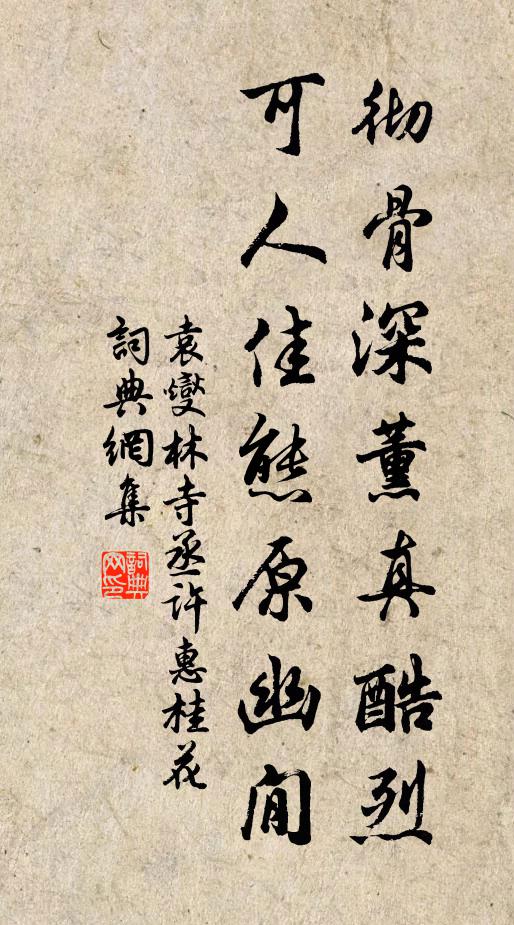 彻骨深薰真酷烈
可人佳態原幽閒
袁燮林寺丞許惠桂花
詞典網集
詞典网印